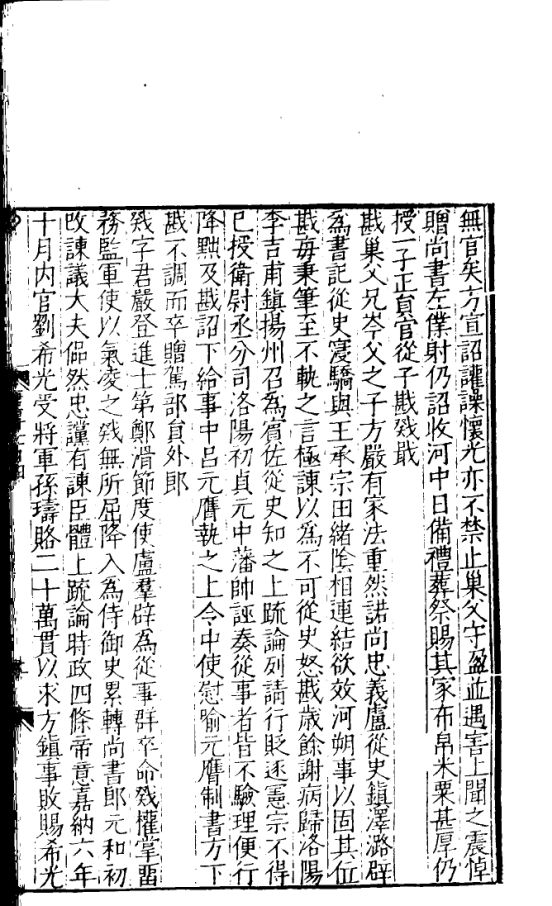 無官矣方宣詔讙譟懷光亦不禁止巢父守盈並遇害上聞之震悼
贈尚書左僕射仍詔收河中日備禮葬祭賜其家布帛米粟甚厚仍
授一子正員官從子戡戣戢
戡巢父兄岑父之子方嚴有家法重然諾尚忠義盧從史鎮澤潞辟
為書記從史寖驕與王承宗田緒陰相連結欲效河朔事以固其位
戡每秉筆至不軌之言極諫以為不可從史怒戡歲餘謝病歸洛陽
李吉甫鎮揚州召為賓佐從史知之上疏論列請行貶逐憲宗不得
已授衛尉丞分司洛陽初貞元中藩帥誣奏從事者皆不驗理便行
降黜及戡詔下給事中呂元膺執之上令中使慰喻元膺制書方下
戡不調而卒贈駕部員外郎
戣字君嚴登進士第鄭滑節度使盧羣辟為從事群卒命戣權掌留
務監軍使以氣凌之戣無所屈降入為侍御史累轉尚書郎元和初
改諫議大夫侃然忠讜有諫臣體上疏論時政四條帝意嘉納六年
十月内官劉希光受將軍孫璹賂二十萬貫以求方鎮事敗賜希光